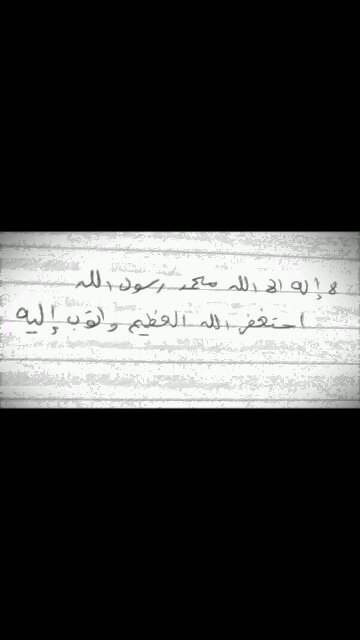 لا إله الا الله محمد رسول الله
استغفر الله العظيم واتوب إليه